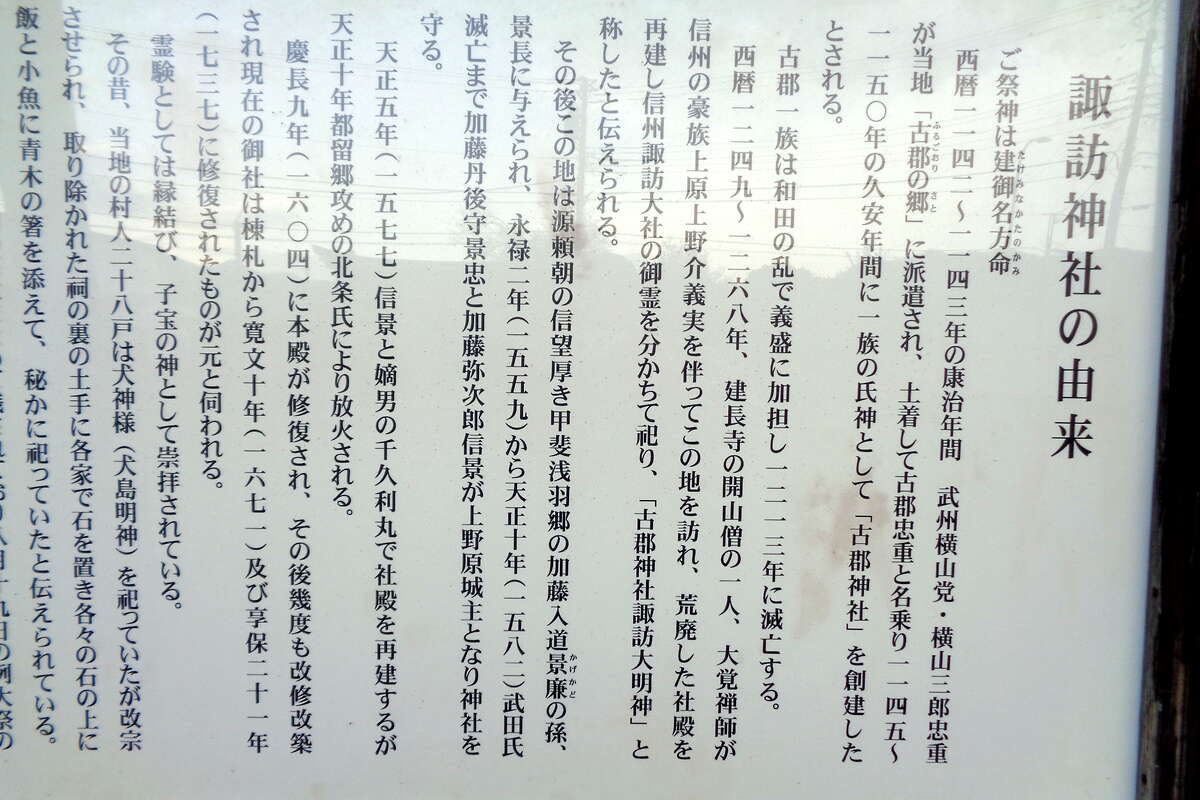 諏訪神社の由来
ご祭神は建御名方命
たけみなかたのかみ
西暦一一四二～一一四三年の康治年間　武州横山党・横山三郎忠重
が当地「古郡の郷」に派遣され、土着して古郡忠重と名乗り一一四五～
ふるごおり　さと
一一五〇年の久安年間に一族の氏神として「古郡神社」を創建した
とされる。
古郡一族は和田の乱で義盛に加担し一二一三年に滅亡する。
西暦一二四九～一二六八年、建長寺の開山僧の一人、大覚禅師が
信州の豪族上原上野介義実を伴ってこの地を訪れ、荒廃した社殿を
再建し信州諏訪大社の御霊を分かちて祀り、「古郡神社諏訪大明神」と
称したと伝えられる。
その後この地は源頼朝の信望厚き甲斐浅羽郷の加藤入道景廉の孫、
かげかど
景長に与えられ、永禄二年（一五五九）から天正十年（一五八二）武田氏
滅亡まで加藤丹後守景忠と加藤弥次郎信景が上野原城主となり神社を
守る。
天正五年（一五七七）信景と嫡男の千久利丸で社殿を再建するが
天正十年都留郷攻めの北条氏により放火される。
慶長九年（一六〇四）に本殿が修復され、その後幾度も改修改築
され現在の御社は棟札から寛文十年（一六七一）及び享保二十一年
（一七三七）に修復されたものが元と伺われる。
霊験としては縁結び、子宝の神として崇拝されている。
その昔、当地の村人二十八戸は犬神様（犬島明神）を祀っていたが改宗
させられ、取り除かれた祠の裏の土手に各家で石を置き各々の石の上に
飯と小魚に青木の箸を添えて、秘かに祀っていたと伝えられている。
八月十九日の例大祭の